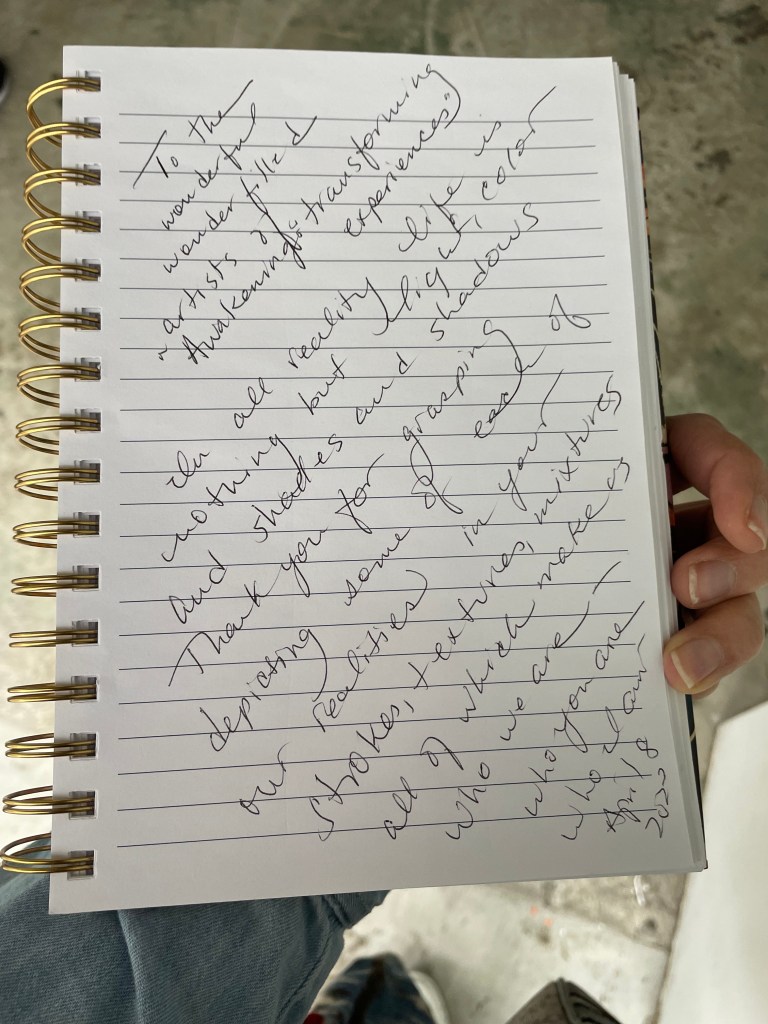 To the
wonderful
wonder filled
artists of
"Awakenings: transforming
experiences"
In all reality life is
nothing but light, color
and shades and shadows
Thank you for grasping
depicting some of each of
our realities in your
strokes, textures, mixtures
all of which make us
who we are —
who you are
who I am
April 8
2022